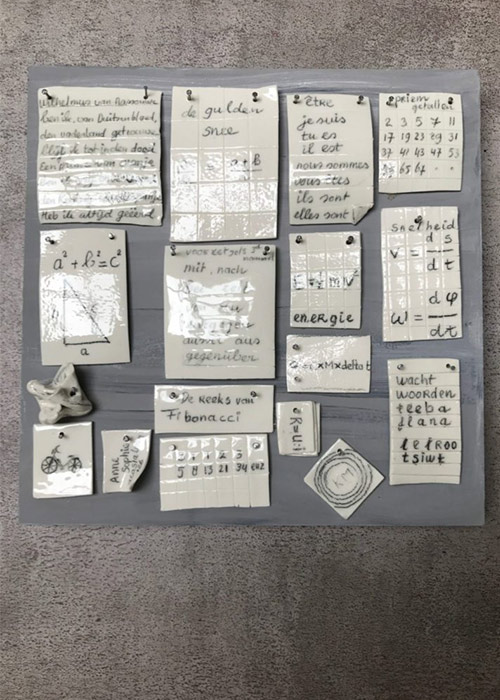 Wilhelmus van Nassouwe
ben ik, van Duitsen bloed,
den vaderland getrouwe
blijf ik tot in den dood
Een prinse van oranje
heb ik altijd geëerd
de gulden
snee
a+b
être
je suis
tu es
il est
nous sommes
vous êtes
ils sont
elles sont
priem
getallen
2 3 5 7 11
17 19 23 29 31
37 41 43 47 53
65 67
a² + b² = c²
a
voorzetsels 3e
mit, nach
zu
gegen
außer aus
gegenüber
energie
snelheid
v = ds
dt
ω = dφ
dt
xMxdelta t
wacht
woorden
teeba
llana
lelROO
tsiwt
De Reeks van
Fibonacci
5 8 13 21 34 enz
R=U:I
Anne
Sophie
KM